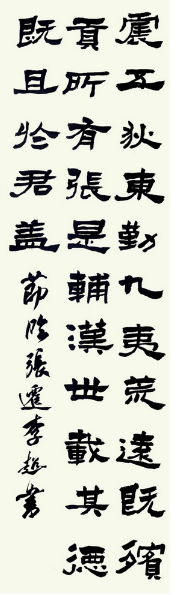 震五狄東勤九夷荒遠既殯
貢所有張是輔漢世載其德
既且於君盖
節臨張遷李超書